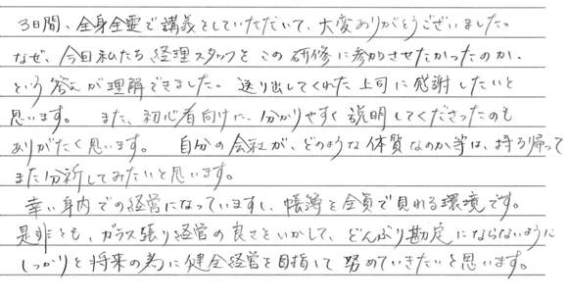 3日間、全身全霊で講義をしていただいて、大変ありがとうございました。
なぜ、今回私たち経理スタッフをこの研修に参加させたかったのか、
という答えが理解できました。送り出してくれた上司に感謝したいと
思います。また、初心者向けに、分かりやすく説明してくださったのも
ありがたく思います。自分の会社が、どのような体質なのか等は、持ち帰って
また分析してみたいと思います。
幸い身内での経営になっていますし、帳簿を全員で見れる環境です。
是非とも、ガラス張り経営の良さをいかして、どんぶり勘定にならないように
しっかりと将来の為に健全経営を目指して努めていきたいと思います。